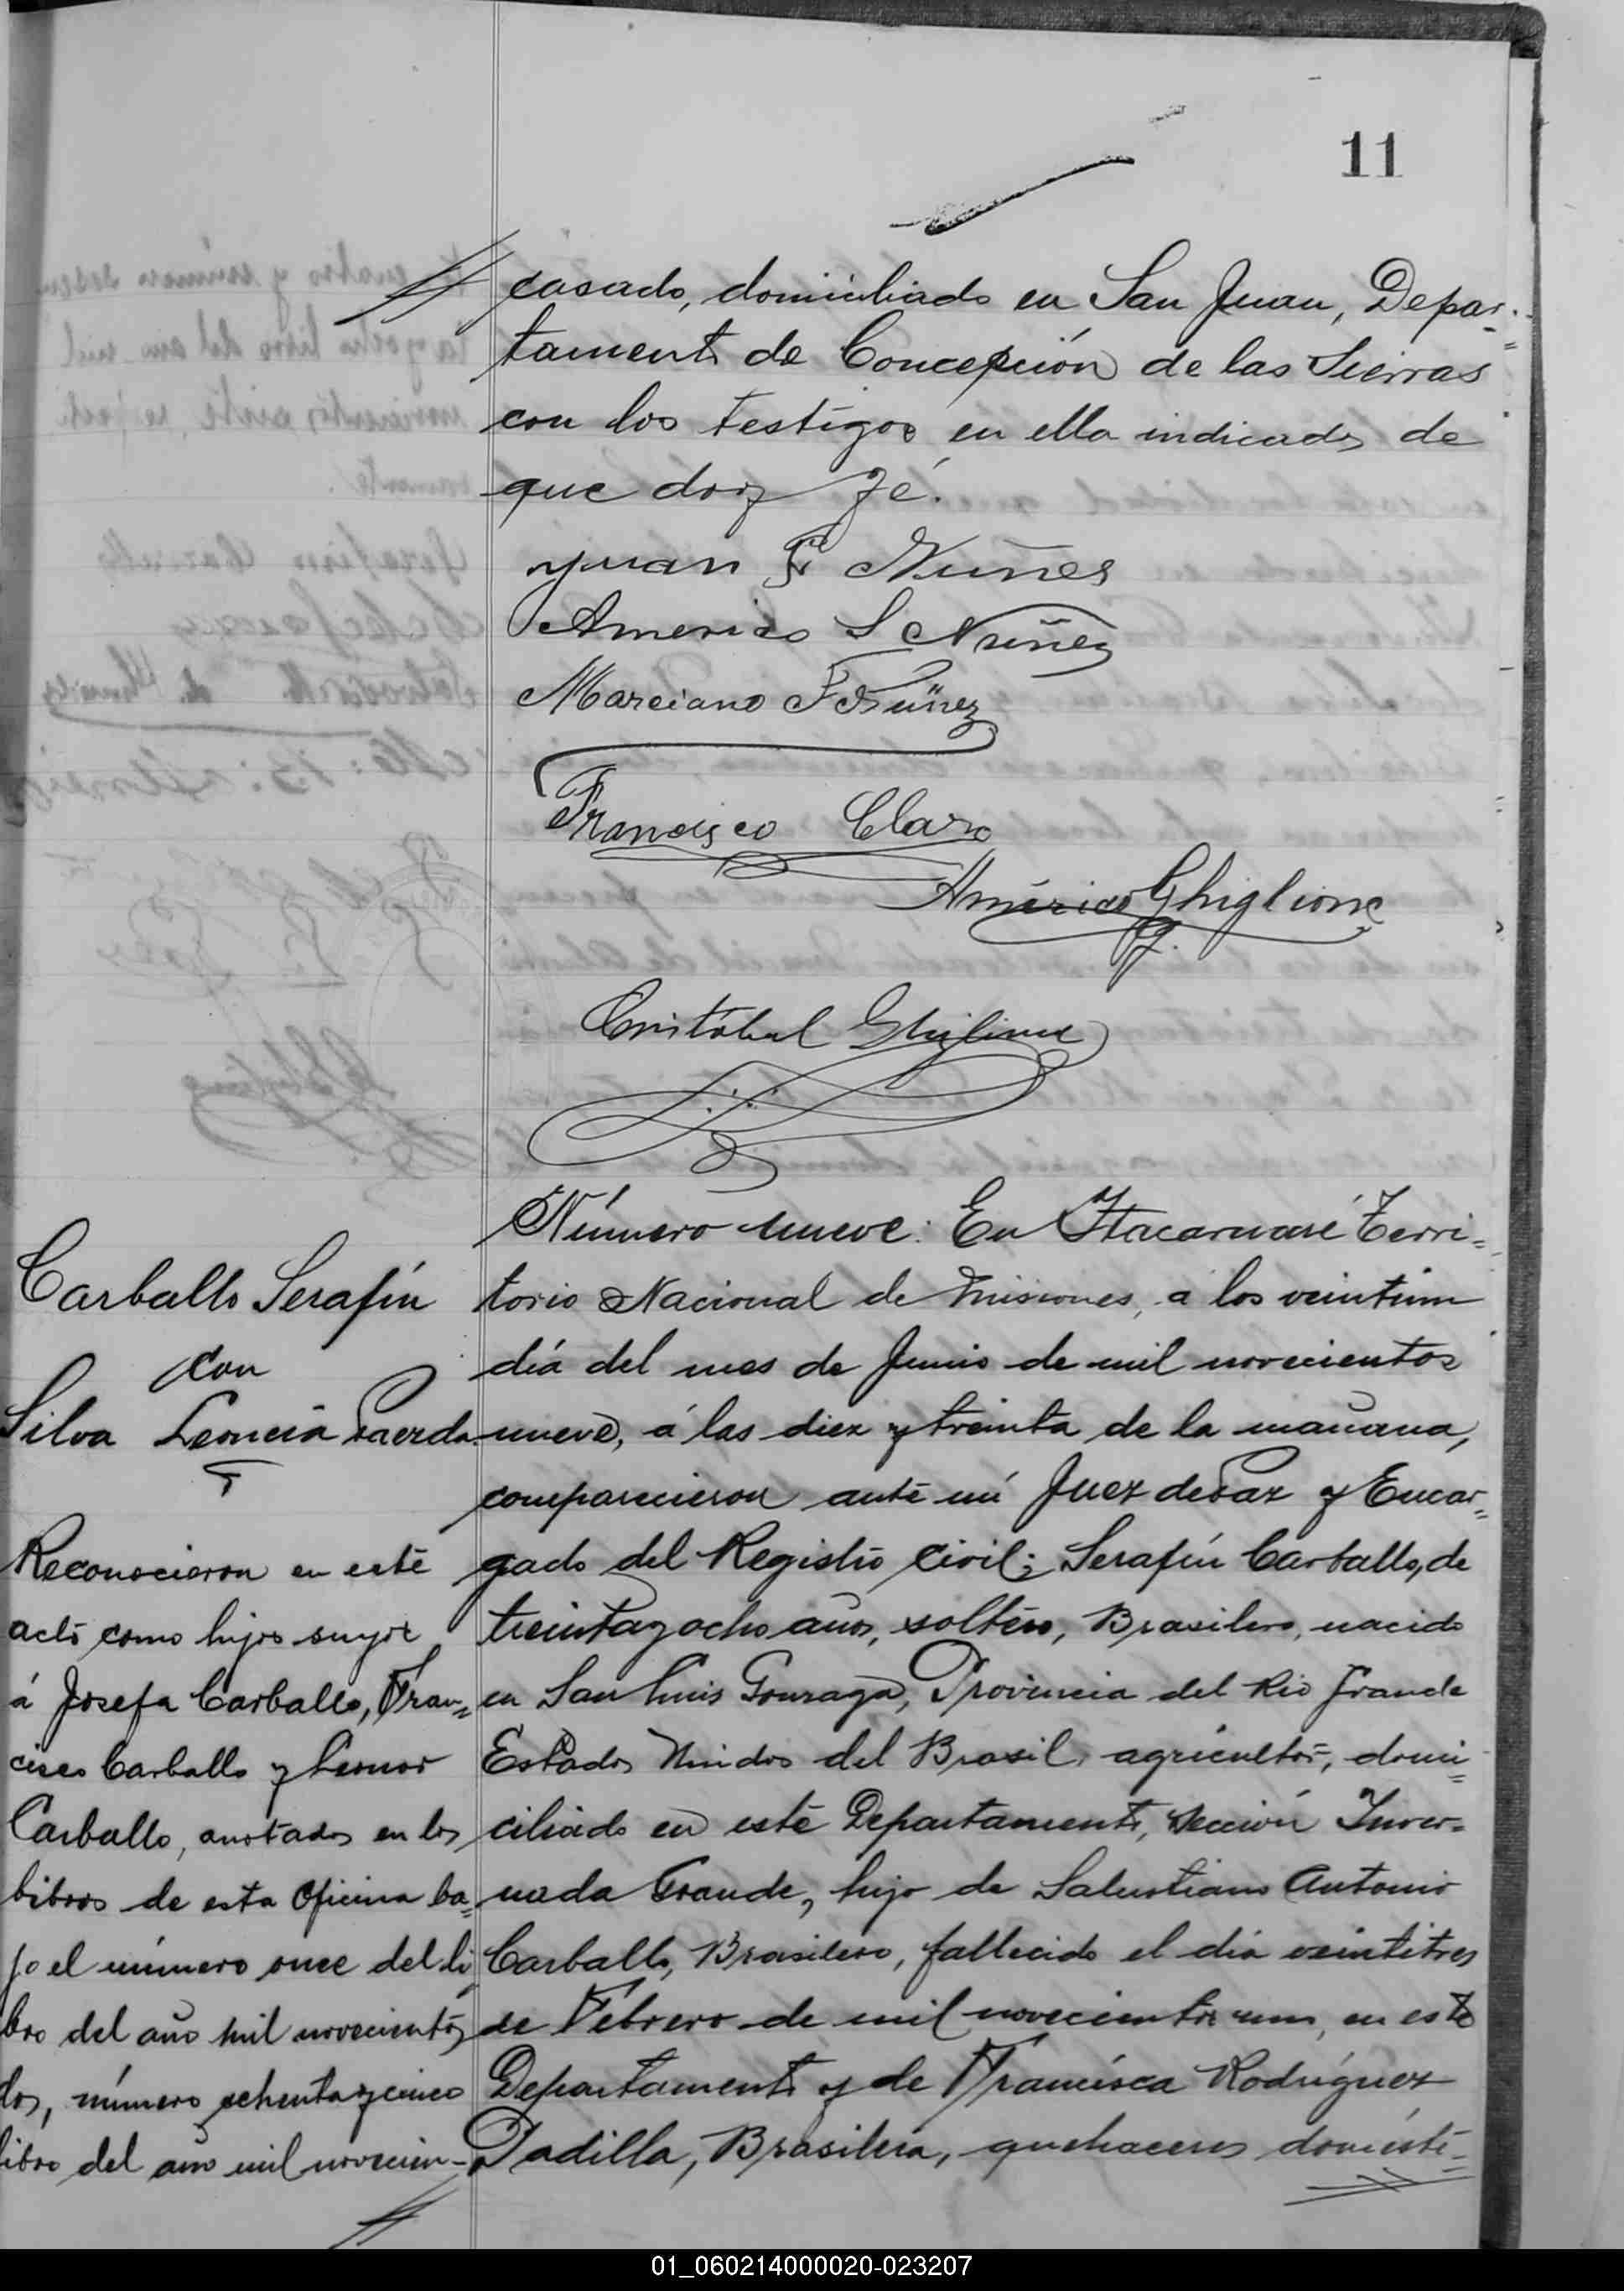 11
casado, domiciliado en San Juan, Depar-
tamento de Concepción de las Sierras
con los testigos en ella indicados de
que doy fé.
Juan F Nuñes
Americo S Nuñez
Marciano F Núñez
Francisco Claro
Américo Ghiglione
Cristobal Ghiglione
Carballo Serafín
con
Silva Leoncia
Reconocieron en este
acto como hijos suyos
á Josefa Carballo, Fran=
cisco Carballo y Leonor
Carballo, anotados en los
libros de esta Oficina ba=
jo el número once del li
bro del año mil novecientos
dos, número ochenta y cinco
libro del año mil novecien-
Número nueve: En Itacaruaré Terri=
torio Nacional de Misiones, a los veintiun
día del mes de Junio de mil novecientos
nueve, á las diez y treinta de la mañana,
comparecieron ante mí Juez de Paz y Encar=
gado del Registro Civil; Serafín Carballo, de
treinta y ocho años, soltero, Brasilero, nacido
en San Luis Gonzaga, Provincia del Rio Grande
Estados Unidos del Brasil, agricultor, domi=
ciliado en este Departamento, Sección Inver=
nada Grande, hijo de Salustiano Antonio
Carballo, Brasilero, fallecido el día veintitres
de Febrero de mil novecientos uno, en este
Departamento y de Francisca Rodríguez
Padilla, Brasilera, quehaceres domésti=
01_060214000020-023207